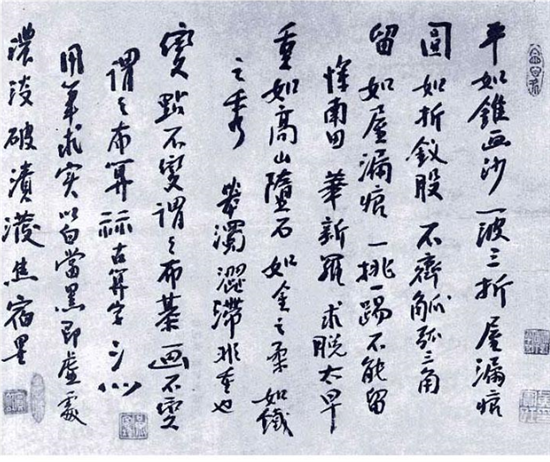 平如錐画沙 一波三折 屋漏痕
圓如折釵股 不齊觚弧三角
留如屋漏痕 一挑一踢不能留
惲南田 華新羅 求脫太早
重如高山墜石 如金之柔 如鐵
之秀 濁澀滯非重也
變 點不變謂之布棊 画不變
謂之布算 祘古算字
用筆求实以白當黑即虛處
濃淡破漬潑焦宿墨